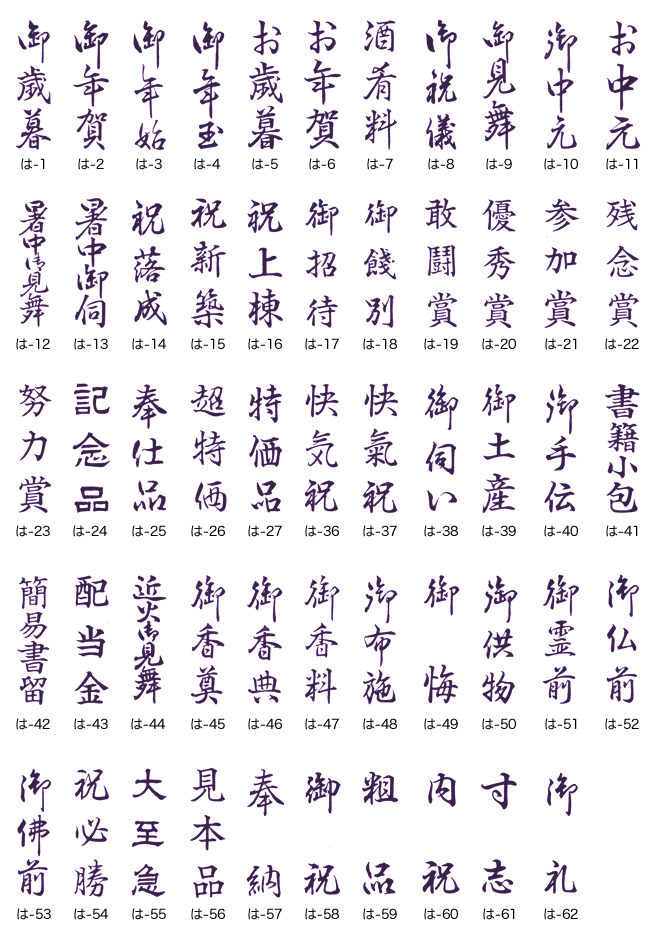 御歳暮
は-1
御年賀
は-2
御年始
は-3
御年玉
は-4
お歳暮
は-5
お年賀
は-6
酒肴料
は-7
御祝儀
は-8
御見舞
は-9
御中元
は-10
お中元
は-11
暑中御見舞
は-12
暑中御伺
は-13
祝落成
は-14
祝新築
は-15
祝上棟
は-16
御招待
は-17
御餞別
は-18
敢闘賞
は-19
優秀賞
は-20
参加賞
は-21
残念賞
は-22
努力賞
は-23
記念品
は-24
奉仕品
は-25
超特価
は-26
特価品
は-27
快気祝
は-36
快氣祝
は-37
御伺い
は-38
御土産
は-39
御手伝
は-40
書籍小包
は-41
簡易書留
は-42
配当金
は-43
近火御見舞
は-44
御香奠
は-45
御香典
は-46
御香料
は-47
御布施
は-48
御悔
は-49
御供物
は-50
御霊前
は-51
御仏前
は-52
御佛前
は-53
祝必勝
は-54
大至急
は-55
見本品
は-56
奉納
は-57
御祝
は-58
粗品
は-59
内祝
は-60
寸志
は-61
御礼
は-62